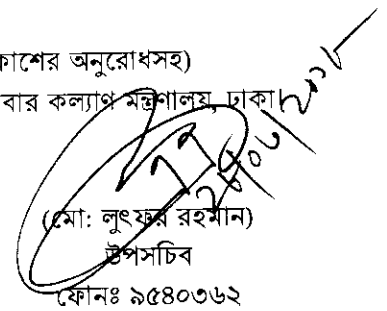 কাশের অনুরোধসহ)
বার কল্যাণ মন্ত্রণালয়, ঢাকা।
(মো: লুৎফর রহমান)
উপসচিব
ফোনঃ ৯৫৪০৩৬২